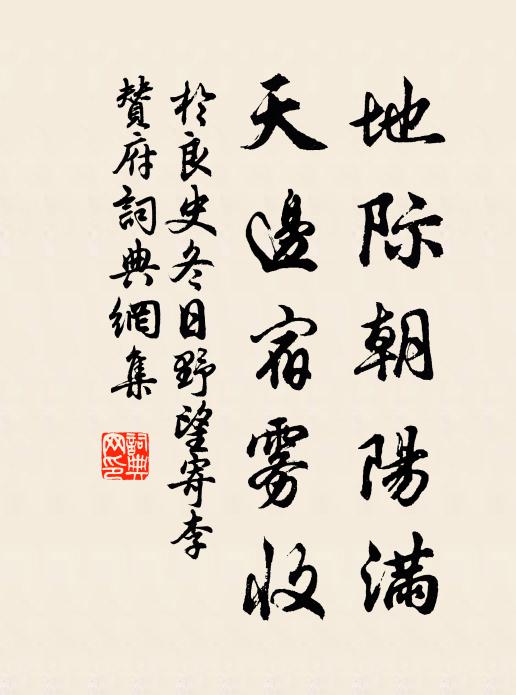 地际朝陽满
天邊宿雾收
於良史冬日野望寄李
赞府詞典網集
詞典
网印